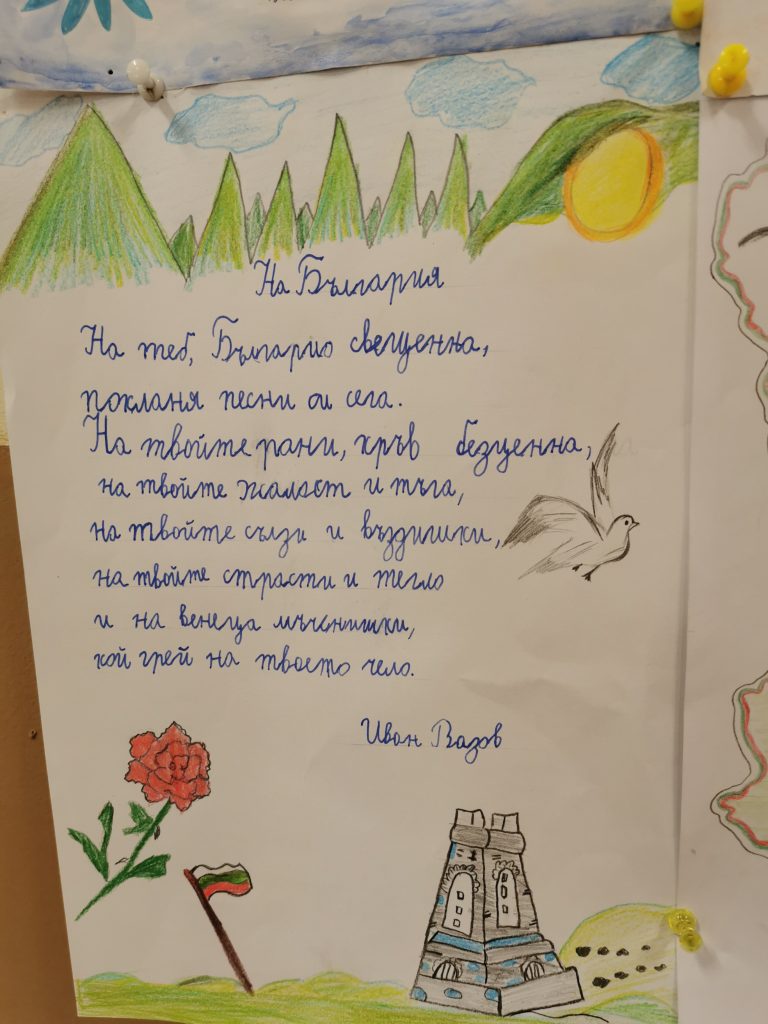 На България
На теб, Българио свещенна,
покланя песни си сега.
На твойте рани, кръв безценна,
на твойте жалост и тъга,
на твойте сълзи и въздишки,
на твойте страсти и тегло
и на венеца мъченишки,
кой грей на твоето чело.
Иван Вазов